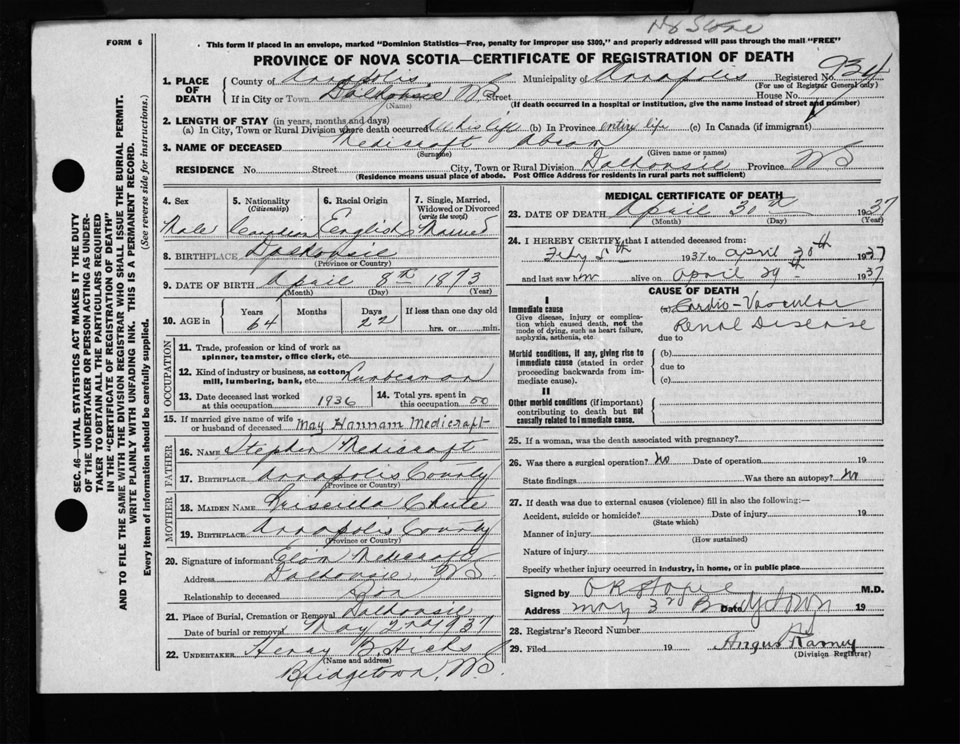 FORM 6
This form if placed in an envelope, marked "Dominion Statistics—Free, penalty for improper use $300," and properly addressed will pass through the mail "FREE"
PROVINCE OF NOVA SCOTIA—CERTIFICATE OF REGISTRATION OF DEATH
1. PLACE OF DEATH County of Annapolis Municipality of Annapolis Registered No. 934
(For use of Registrar General only)
If in City or Town Dalhousie NS Street House No.
(Name) (If death occurred in a hospital or institution, give the name instead of street and number)
2. LENGTH OF STAY (in years, months and days)
(a) In City, Town or Rural Division where death occurred all his life (b) In Province entire life (c) In Canada (if immigrant)
3. NAME OF DECEASED Medicraft
(Surname) (Given name or names)
RESIDENCE No. Street City, Town or Rural Division Dalhousie Province NS
(Residence means usual place of abode. Post Office Address for residents in rural parts not sufficient)
4. Sex 5. Nationality (Citizenship) 6. Racial Origin 7. Single, Married, Widowed or Divorced (write the word)
Male Canadian English Married
8. BIRTHPLACE Dalhousie
(Province or Country)
9. DATE OF BIRTH April 8th 1873
(Month) (Day) (Year)
10. AGE in Years Months Days If less than one day old
64 22 hrs. or min.
OCCUPATION
11. Trade, profession or kind of work as spinner, teamster, office clerk, etc.
12. Kind of industry or business, as cotton mill, lumbering, bank, etc. Lumberman
13. Date deceased last worked at this occupation 1936 14. Total yrs. spent in this occupation 50
15. If married give name of wife or husband of deceased May Hannam Medicraft
FATHER
16. NAME Stephen Medicraft
17. BIRTHPLACE Annapolis County
(Province or Country)
MOTHER
18. MAIDEN NAME Priscilla Chute
19. BIRTHPLACE Annapolis County
(Province or Country)
20. Signature of informant Medicraft
Address Dalhousie NS
Relationship to deceased Son
21. Place of Burial, Cremation or Removal Dalhousie
Date of burial or removal May 2nd 1937
22. UNDERTAKER Henry B. Hicks
(Name and address)
Bridgetown, NS
MEDICAL CERTIFICATE OF DEATH
23. DATE OF DEATH April 30th 1937
(Month) (Day) (Year)
24. I HEREBY CERTIFY, that I attended deceased from:
Feby 5th 1937 to April 30th 1937
and last saw him alive on April 29th 1937
CAUSE OF DEATH
I
Immediate cause (a) Cardio-Vascular
Give disease, injury or complication which caused death, not the mode of dying, such as heart failure, asphyxia, asthenia, etc. Renal Disease
due to
Morbid conditions, if any, giving rise to immediate cause (stated in order proceeding backwards from immediate cause). (b)
due to
(c)
II
Other morbid conditions (if important) contributing to death but not causally related to immediate cause.
25. If a woman, was the death associated with pregnancy?
26. Was there a surgical operation? No Date of operation 19
State findings Was there an autopsy? No
27. If death was due to external causes (violence) fill in also the following:—
Accident, suicide or homicide? Date of injury 19
(State which)
Manner of injury
(How sustained)
Nature of injury
Specify whether injury occurred in industry, in home, or in public place
Signed by M.D.
Address May 3rd Date Bridgetown 19
28. Registrar's Record Number
29. Filed 19 Angus Ramey
(Division Registrar)
SEC. 46—VITAL STATISTICS ACT MAKES IT THE DUTY
OF THE UNDERTAKER OR PERSON ACTING AS UNDER-
TAKER TO OBTAIN ALL THE PARTICULARS REQUIRED
IN THE "CERTIFICATE OF REGISTRATION OF DEATH"
AND TO FILE THE SAME WITH THE DIVISION REGISTRAR WHO SHALL ISSUE THE BURIAL PERMIT.
WRITE PLAINLY WITH UNFADING INK. THIS IS A PERMANENT RECORD.
Every item of information should be carefully supplied. (See reverse side for instructions.)